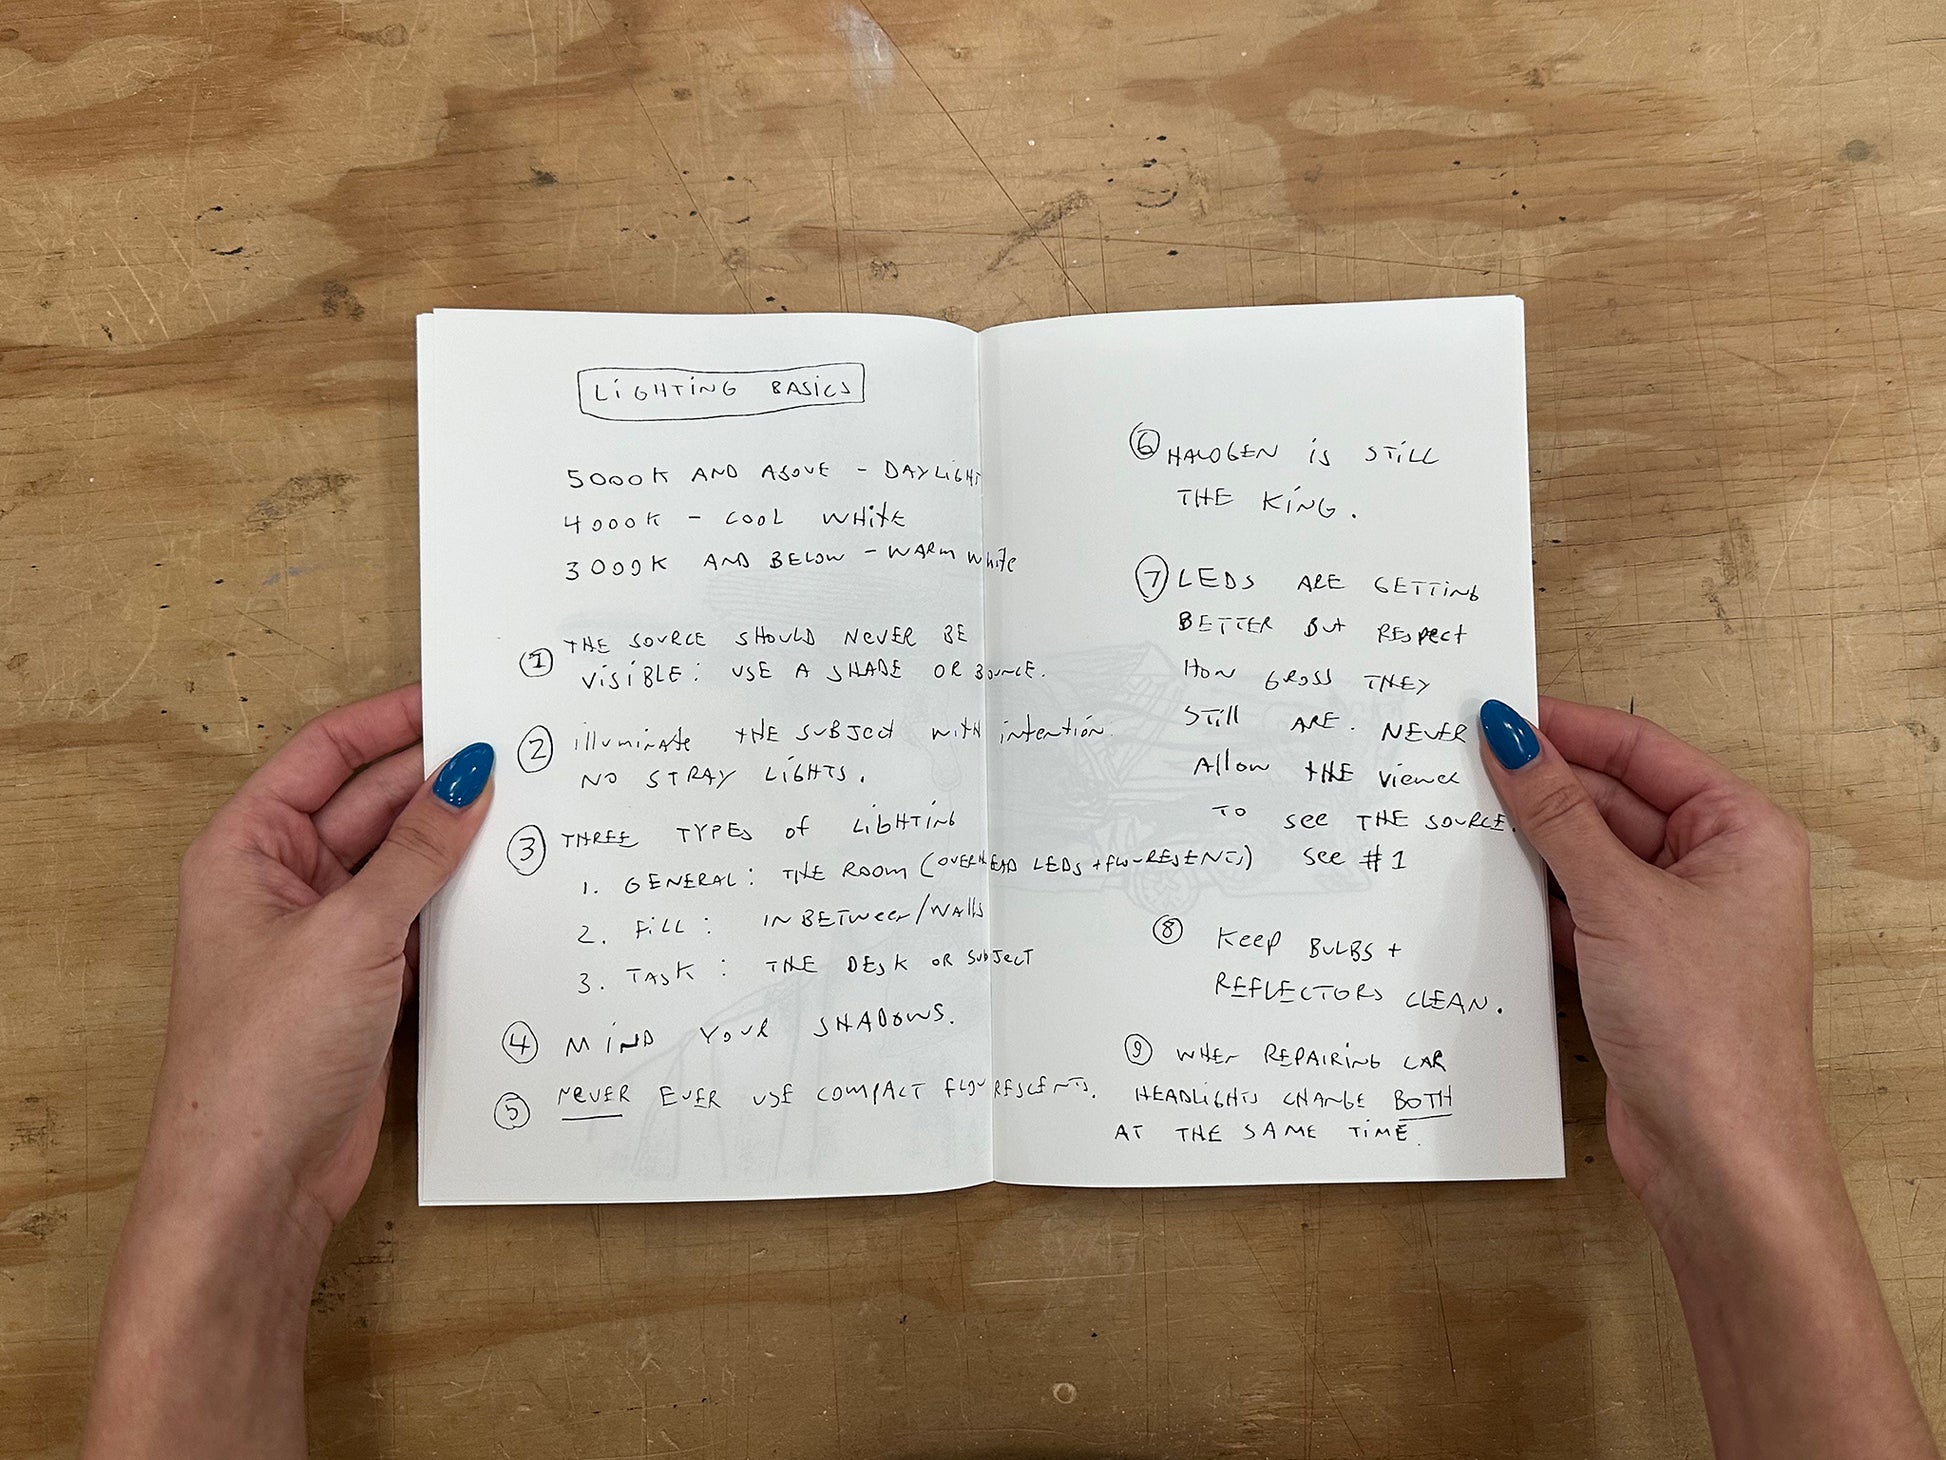 LIGHTING BASICS
5000K AND ABOVE - DAYLIGHT
4000K - COOL WHITE
3000K AND BELOW - WARM WHITE
① THE SOURCE SHOULD NEVER BE
VISIBLE: USE A SHADE OR BOUNCE.
② illuminate THE SUBJECT WITH intention.
NO STRAY LIGHTS.
③ THREE TYPES of LIGHTING
1. GENERAL: THE ROOM (OVERHEAD LEDS + FLOURESENTS)
2. FILL: IN BETWEEN/WALLS
3. TASK: THE DESK OR SUBJECT
④ MIND YOUR SHADOWS.
⑤ NEVER EVER USE COMPACT FLOURESCENTS.
⑥ HALOGEN IS STILL
THE KING.
⑦ LEDS ARE GETTING
BETTER BUT RESPECT
HOW GROSS THEY
STILL ARE. NEVER
Allow THE VIEWER
TO SEE THE SOURCE.
SEE #1
⑧ KEEP BULBS +
REFLECTORS CLEAN.
⑨ WHEN REPAIRING CAR
HEADLIGHTS CHANGE BOTH
AT THE SAME TIME.